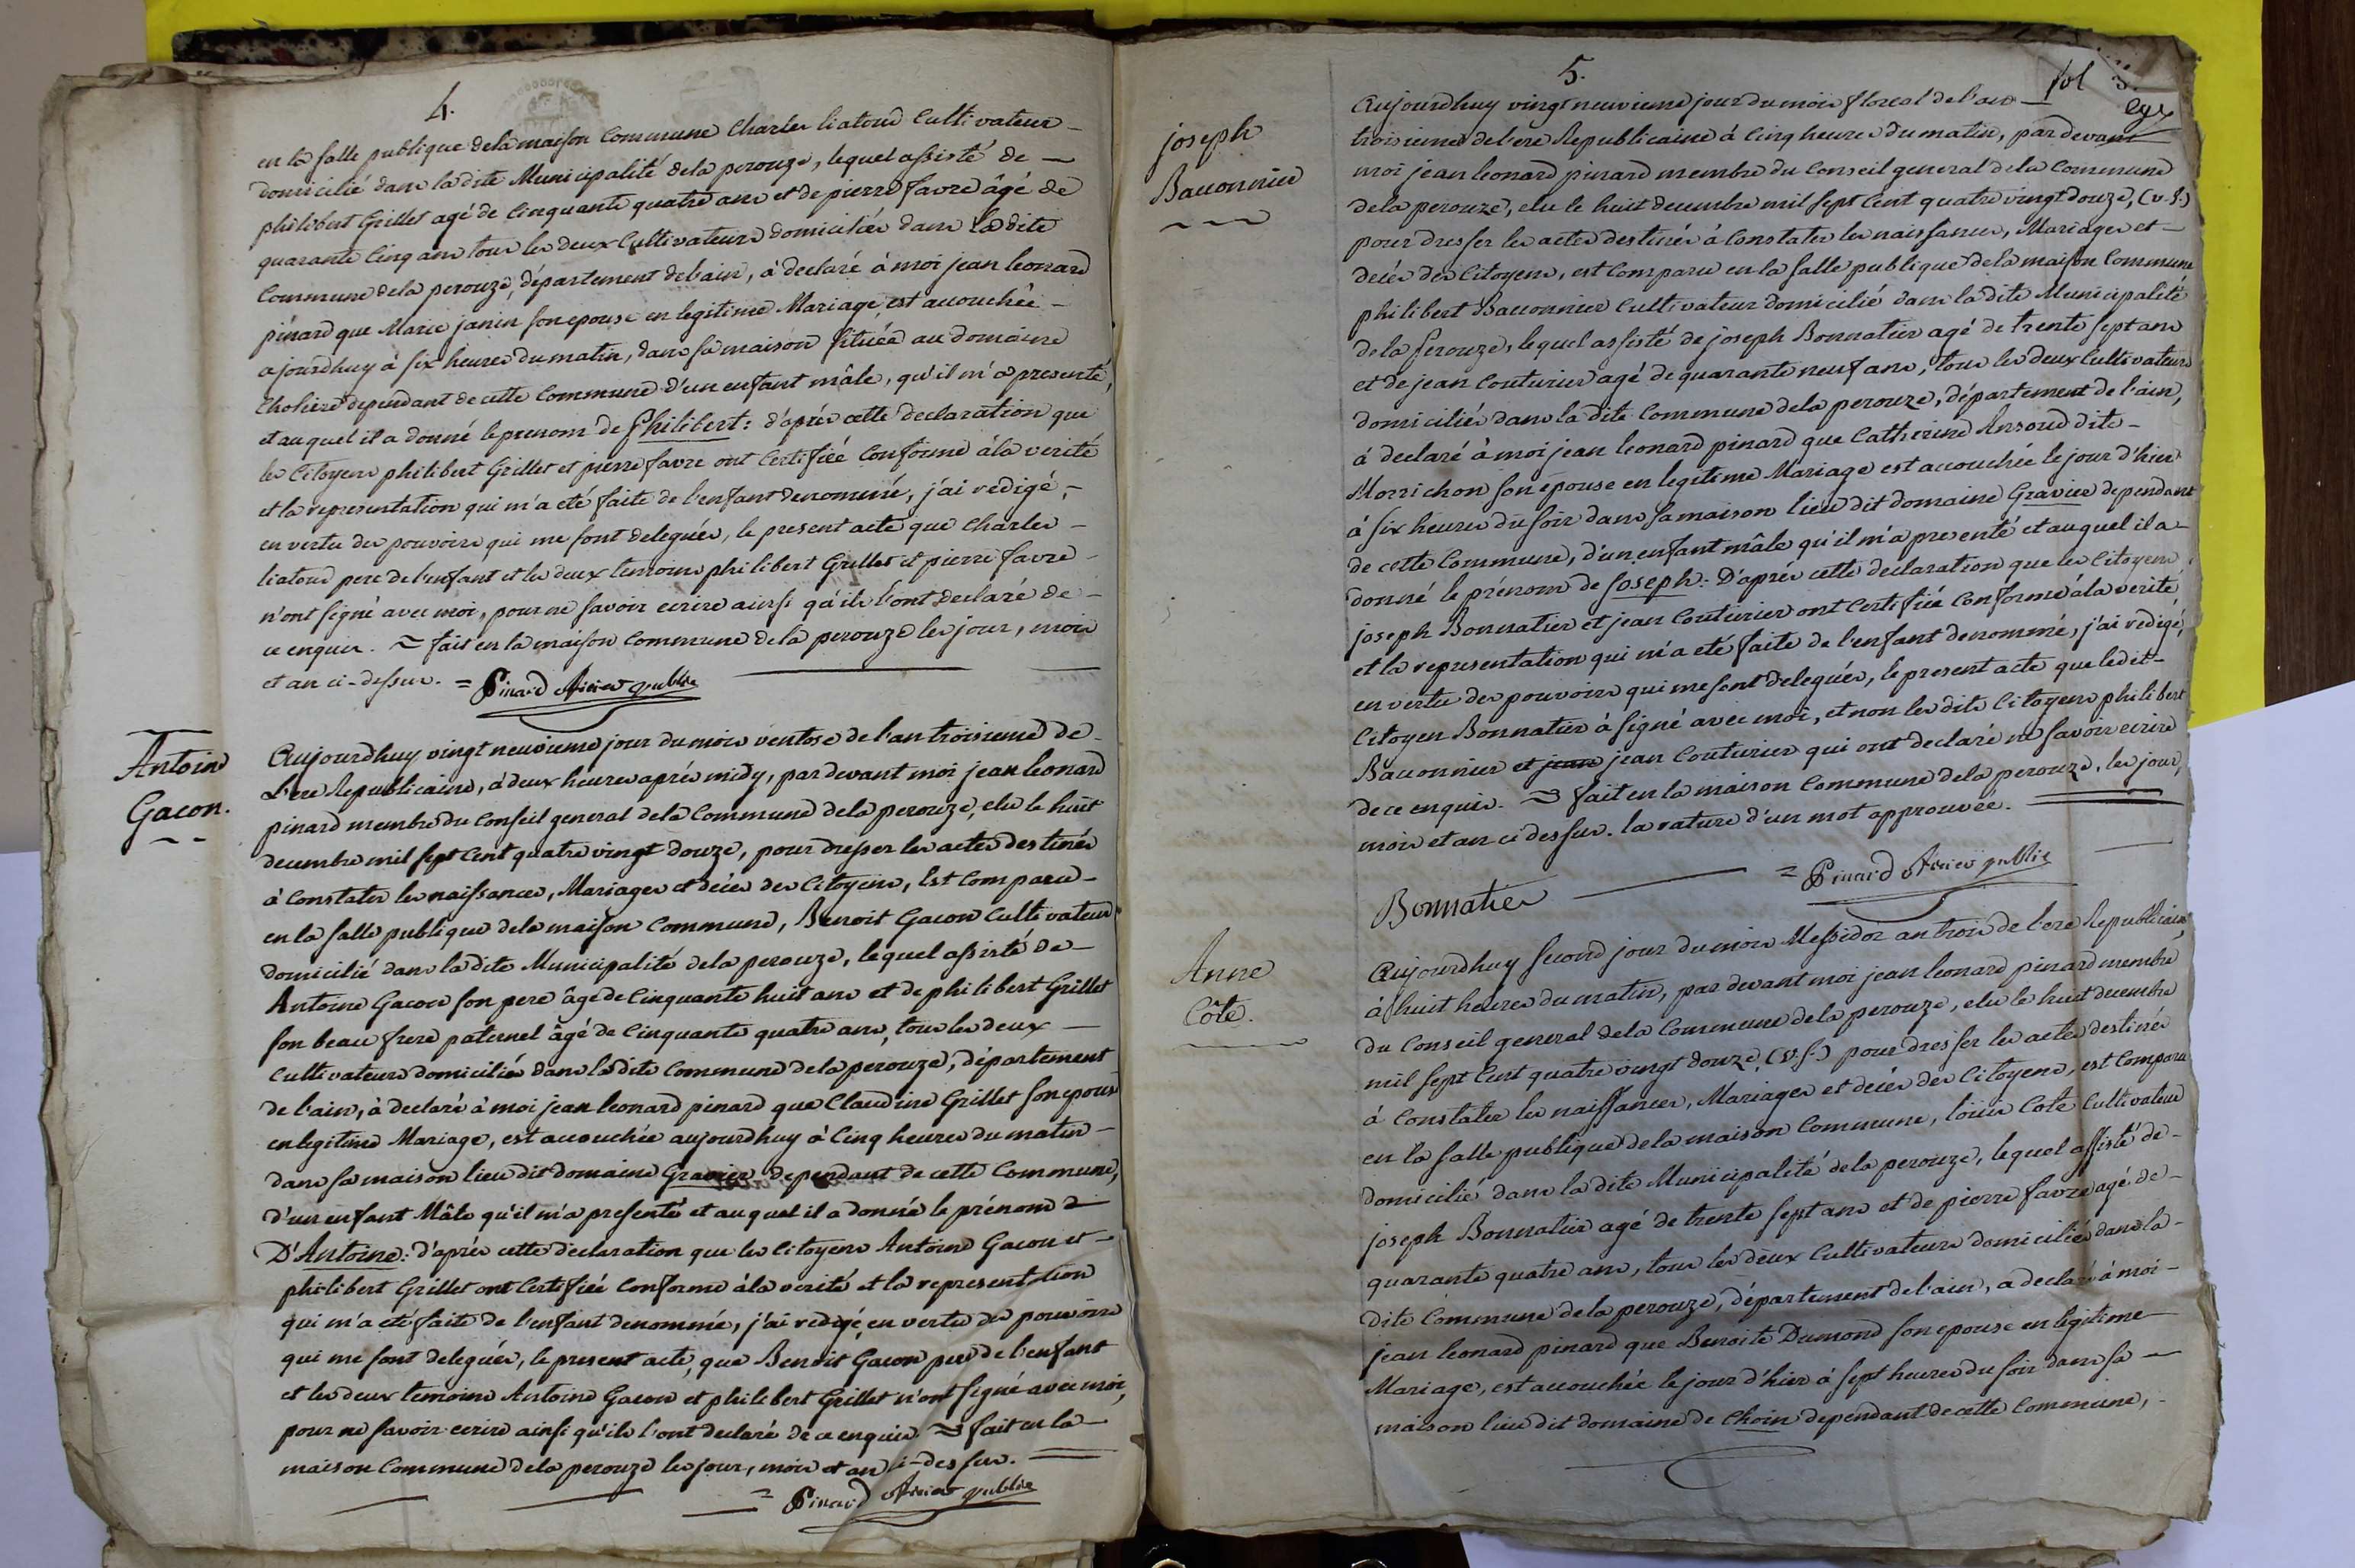 4.
en la salle publique de la maison Commune Charles liatoud Cultivateur
domicilié dans la dite Municipalité de la perouze, lequel assisté de
philibert Grillet agé de Cinquante quatre ans et de pierre favre âgé de
quarante Cinq ans tous les deux Cultivateurs domiciliés dans la dite
Commune de la perouze, département de l'ain, à declaré à moi jean leonard
pinard que Marie janin son epouse en legitime Mariage, est accouchée
ajourdhuy à six heures du matin, dans sa maison située au domaine
dependant de cette Commune d'un enfant mâle, qu'il m'a presenté,
et auquel il a donné le prenom de Philibert: d'après cette declaration que
les Citoyens philibert Grillet et pierre favre ont Certifiée Conforme à la verité
et la representation qui m'a eté faite de l'enfant denommé, j'ai redigé,
en vertu des pouvoirs qui me sont delegués, le present acte que Charles
liatoud pere de l'enfant et les deux temoins philibert Grillet et pierre favre
n'ont signé avec moi, pour ne savoir ecrire ainsi qu'ils l'ont declaré de
ce enquis. = fait en la maison Commune de la perouze les jour, mois
et an ci-dessus. = Pinard officier public
Antoine
Gacon.
Aujourdhuy vingt neuvieme jour du mois ventose de l'an troisieme de
L'ere Republicaine, à deux heures après midy, par devant moi jean leonard
pinard membre du Conseil general de la Commune de la perouze, elu le huit
decembre mil sept Cent quatre vingt douze, pour dresser les actes destinés
à Constater les naissances, Mariages et décès des Citoyens, Est Comparu
en la salle publique de la maison Commune, Benoit Gacon Cultivateur
domicilié dans la dite Municipalité de la perouze, lequel assisté de
Antoine Gacon son pere âgé de Cinquante huit ans et de philibert Grillet
son beau frere paternel âgé de Cinquante quatre ans, tous les deux
Cultivateurs domiciliés dans la dite Commune de la perouze, département
de l'ain, à declaré à moi jean leonard pinard que Claudine Grillet son epouse
en legitime Mariage, est accouchée aujourdhuy à Cinq heures du matin
dans sa maison lieu dit domaine Gravier dependant de cette Commune,
d'un enfant Mâle qu'il m'a presenté et auquel il a donné le prénom d
D'Antoine: d'après cette declaration que les Citoyens Antoine Gacon et
philibert Grillet ont Certifiée Conforme à la verité et la representation
qui m'a eté faite de l'enfant denommé, j'ai redigé, en vertu des pouvoirs
qui me sont delegués, le present acte, que Benoit Gacon pere de l'enfant
et les deux temoins Antoine Gacon et philibert Grillet n'ont signé avec moi,
pour ne savoir ecrire ainsi qu'ils l'ont declaré de ce enquis = fait en la
maison Commune de la perouze les jour, mois et an ci-dessus.
= Pinard officier public
5.
fol 3.
joseph
Bauonnier
Aujourdhuy vingt neuvieme jour du mois floreal de l'an
troisieme de l'ere Republicaine à Cinq heures du matin, par devant
moi jean leonard pinard membre du Conseil general de la Commune
de la perouze, elu le huit decembre mil sept Cent quatre vingt douze, (v.S.)
pour dresser les actes destinés à Constater les naissances, Mariages et
decès des Citoyens, est Comparu en la salle publique de la maison Commune
philibert Bauonnier Cultivateur domicilié dans la dite Municipalité
de la Perouze, lequel assisté de joseph Bonnatier agé de trente sept ans
et de jean Couturier agé de quarante neuf ans, tous les deux Cultivateurs
domiciliés dans la dite Commune de la perouze, département de l'ain,
à declaré à moi jean leonard pinard que Catherine Ansoud dite
Morrichon son epouse en legitime Mariage est accouchée le jour d'hier
à six heures du soir dans sa maison lieu dit domaine Gravier dependant
de cette Commune, d'un enfant mâle qu'il m'a presenté et auquel il a
donné le prénom de Joseph: D'après cette declaration que les Citoyens
joseph Bonnatier et jean Couturier ont Certifiée Conforme à la verité
et la representation qui m'a eté faite de l'enfant denommé, j'ai redigé,
en vertu des pouvoirs qui me sont delegués, le present acte que ledit
Citoyen Bonnatier à signé avec moi, et non les dits Citoyens philibert
Bauonnier et jean jean Couturier qui ont declaré ne savoir ecrire
de ce enquis. = fait en la maison Commune de la perouze, les jour,
mois et an ci dessus. la rature d'un mot approuvée.
Bonnatier = Pinard officier public
Anne
Côte.
Aujourdhuy second jour du mois Messidor an trois de l'ere Republicaine,
à huit heures du matin, par devant moi jean leonard pinard membre
du Conseil general de la Commune de la perouze, elu le huit decembre
mil sept Cent quatre vingt douze, (v.s.) pour dresser les actes destinés
à Constater les naissances, Mariages et decès des Citoyens, est Comparu
en la salle publique de la maison Commune, loüis Cote Cultivateur
domicilié dans la dite Municipalité de la perouze, lequel assisté de
joseph Bonnatier agé de trente sept ans et de pierre favre agé de
quarante quatre ans, tous les deux Cultivateurs domiciliés dans la
dite Commune de la perouze, département de l'ain, a declaré à moi
jean leonard pinard que Benoite Dumond son epouse en legitime
Mariage, est accouchée le jour d'hier à sept heures du soir dans sa
maison lieu dit domaine de Choin dependant de cette Commune,